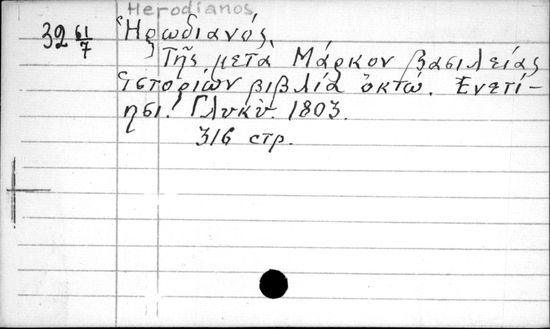 Herodianos
32 61/7 Ἡρωδιανός.
Τῆς μετὰ Μάρκον βασιλείας
ἱστοριῶν βιβλία ὀκτώ. Ἐνετί-
ησι. Γλυκύ. 1803.
316 стр.